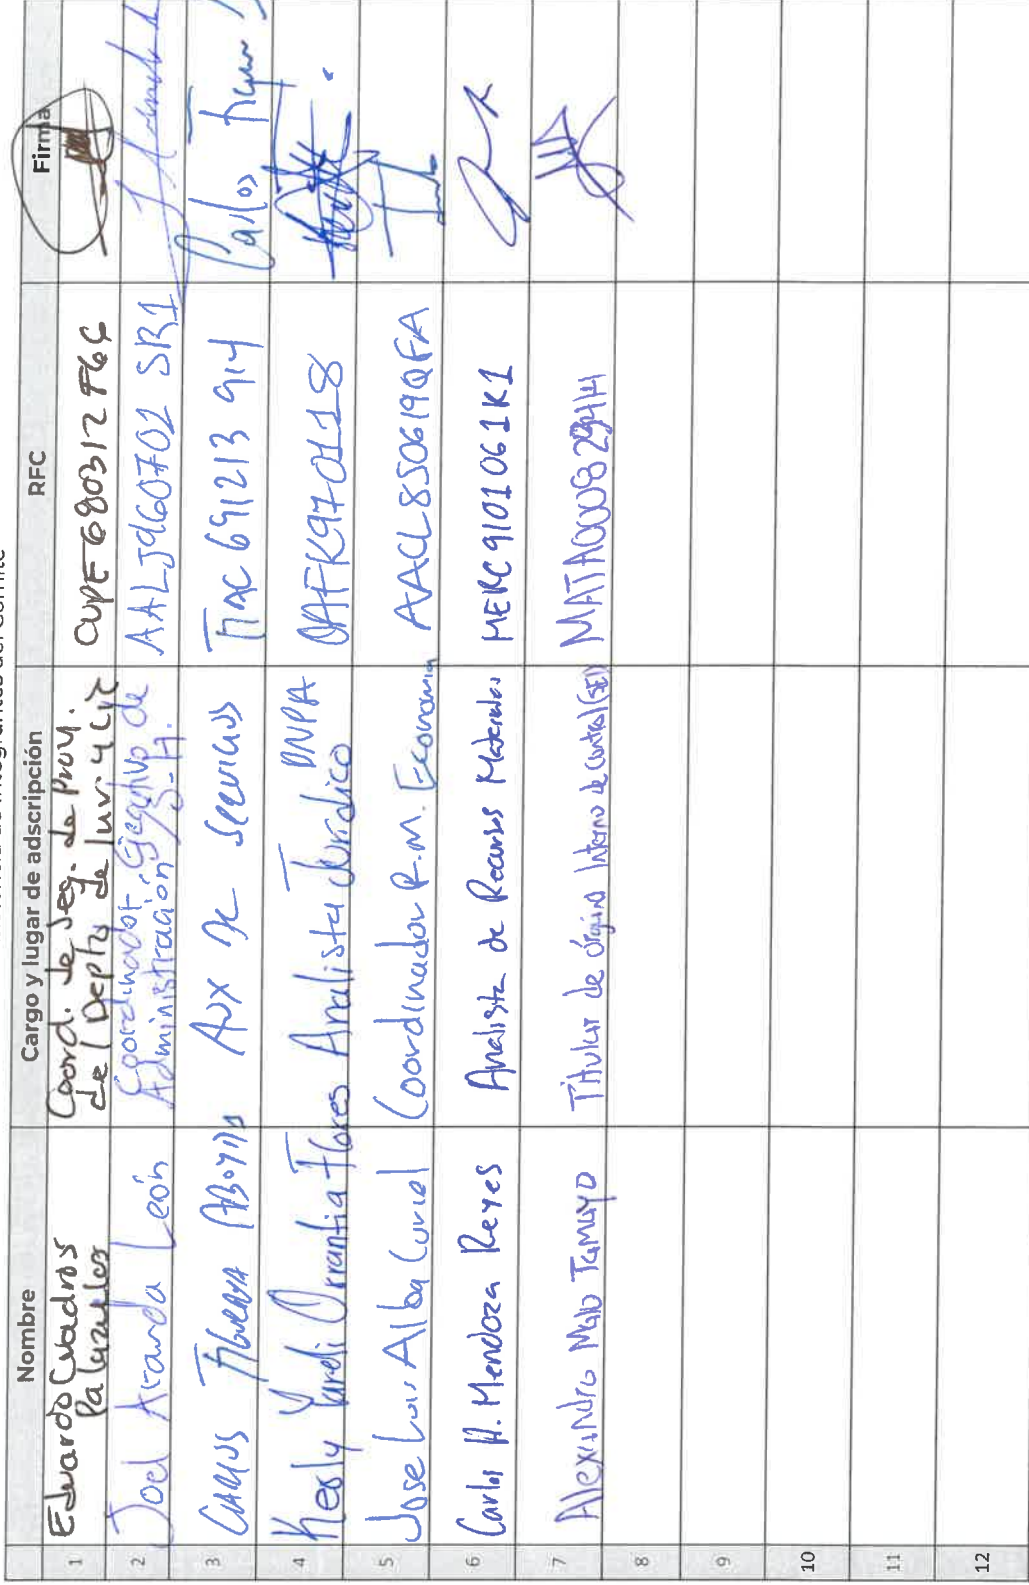 Integrantes del Comité
Nombre Cargo y lugar de adscripción RFC Firma
1 Eduardo Cuadros Palazuelos Coord. de Seg. de Proy. del Depto de CUPE680312F66
2 Joel Aranda León Coordinador Ejecutivo de Administración AALJ960702 SR1
3 Carlos Figueroa Aux de Servicios FIAC 691213 914 Carlos
4 Kesly Yuridi Orrantia Flores Analista Jurídico DNPA OAFK970118
5 Jose Luis Alba Curiel Coordinador R.M. Economia AACL850619QFA
6 Carlos H. Mendoza Reyes Analista de Recursos Materiales MERC9101061K1
7 Alexandro Malo Tamayo Titular de Órgano Interno de Control (SE)
8
9
10
11
12